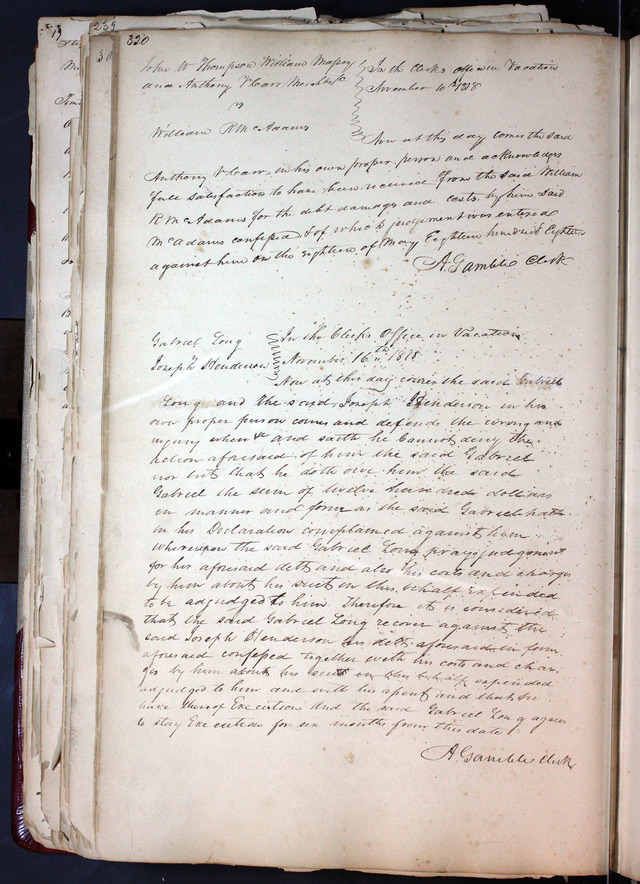 320
John W Thompson William Massey
and Anthony V Carr Merchts
In the Clerks office in Vacation
November 10th 1818
vs
William R McAdams
Now at this day comes the said
Anthony V Carr in his own proper person and acknowledges
full satisfaction to have been received from the said William
R McAdams for the debt damages and costs by him said
McAdams confessed & of which judgement was entered
against him on the eighteen of May Eighteen hundred Eighteen
A. Gamble Clerk
Gabriel Long
Joseph Henderson
In the Clerks Office in Vacation
November 16th 1818
Now at this day comes the said Gabriel
Long and the said Joseph Henderson in his
own proper person comes and defends the wrong and
injury when &c and saith he Cannot deny the
action aforesaid of him the said Gabriel
nor but that he doth owe him the said
Gabriel the sum of twelve hundred dollars
in manner and form as the said Gabriel hath
in his Declaration complained against him
whereupon the said Gabriel Long prays judgement
for his aforesaid debt and also his costs and charges
by him about his suit in this behalf expended
to be adjudged to him Therefore it is considered
that the said Gabriel Long recover against the
said Joseph Henderson his debt aforesaid in form
aforesaid confessed together with his costs and char
ges by him about his suit in this behalf expended
adjudged to him and with his assent and that he
have thereof Execution And the said Gabriel Long agrees
to stay Execution for six months from this date
A. Gamble Clerk